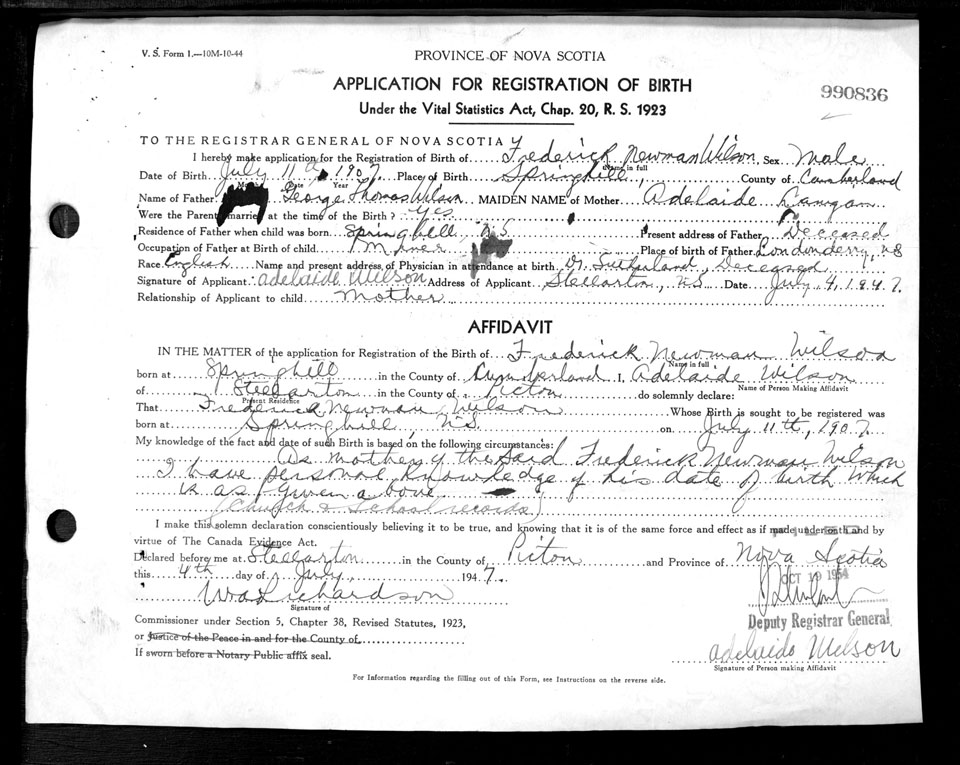 V. S. Form 1.—10M-10-44
PROVINCE OF NOVA SCOTIA
APPLICATION FOR REGISTRATION OF BIRTH
990836
Under the Vital Statistics Act, Chap. 20, R. S. 1923
TO THE REGISTRAR GENERAL OF NOVA SCOTIA
I hereby make application for the Registration of Birth of Frederick Newman Wilson Sex Male
Name in full
Date of Birth July 11th 1907 Place of Birth Springhill, County of Cumberland
Month Date Year
Name of Father George Thomas Wilson MAIDEN NAME of Mother Adelaide Langan
Were the Parents married at the time of the Birth? Yes
Residence of Father when child was born Springhill, N.S. Present address of Father Deceased
Occupation of Father at Birth of child Miner Place of birth of Father Londonderry, NS
Race English Name and present address of Physician in attendance at birth Dr Sutherland, Deceased
Signature of Applicant adelaide Wilson Address of Applicant Stellarton, N.S. Date July 4, 1947.
Relationship of Applicant to child Mother
AFFIDAVIT
IN THE MATTER of the application for Registration of the Birth of Frederick Newman Wilson
Name in full
born at Springhill in the County of Cumberland I, Adelaide Wilson
Name of Person Making Affidavit
of Stellarton in the County of Picton do solemnly declare:
Present Residence
That Frederick Newman Wilson Whose Birth is sought to be registered was
born at Springhill, N.S. on July 11th, 1907.
My knowledge of the fact and date of such Birth is based on the following circumstances:
As mother of the said Frederick Newman Wilson
I have personal knowledge of his date of birth which
is as given above
(Church & School records)
I make this solemn declaration conscientiously believing it to be true, and knowing that it is of the same force and effect as if made under oath and by
virtue of The Canada Evidence Act.
Declared before me at Stellarton in the County of Picton and Province of Nova Scotia
this 4th day of July 1947.
OCT 19 1954
Richardson
Signature of
Deputy Registrar General
Commissioner under Section 5, Chapter 38, Revised Statutes, 1923,
or Justice of the Peace in and for the County of
If sworn before a Notary Public affix seal.
adelaide Wilson
Signature of Person making Affidavit
For Information regarding the filling out of this Form, see Instructions on the reverse side.